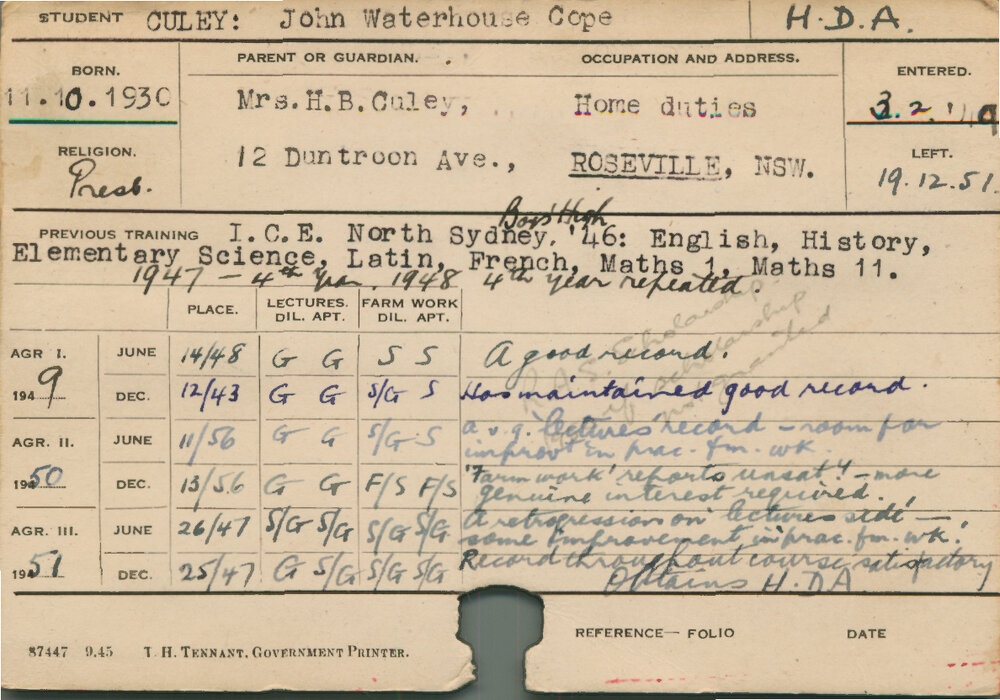 STUDENT CULEY: John Waterhouse Cope H.D.A.
BORN. PARENT OR GUARDIAN. OCCUPATION AND ADDRESS. ENTERED.
11.10.1930 Mrs.H.B.Culey, Home duties 3.2.'49
RELIGION. 12 Duntroon Ave., ROSEVILLE, NSW. LEFT.
Presb. 19.12.51.
Boys' High
PREVIOUS TRAINING I.C.E. North Sydney. '46: English, History,
Elementary Science, Latin, French, Maths 1, Maths 11.
1947 - 4th Year. 1948 4th year repeated.
PLACE. LECTURES. DIL. APT. FARM WORK DIL. APT.
R.A.S. Scholarship
scholarship
AGR I. JUNE 14/48 G G S S A good record.
1949 DEC. 12/43 G G S/G S Has maintained good record.
AGR. II. JUNE 11/56 G G S/G S a v.g. 'lectures' record - room for
improvt in prac. fm. wk.
1950 DEC. 13/56 G G F/S F/S 'Farm work' reports unsat. - more
genuine interest required.
AGR. III. JUNE 26/47 S/G S/G S/G S/G A retrogression on 'lectures side' -
some improvement in prac. fm. wk.
1951 DEC. 25/47 G S/G S/G S/G Record throughout course satisfactory
Obtains H.D.A
REFERENCE— FOLIO DATE
87447 9.45 T. H. TENNANT, GOVERNMENT PRINTER.